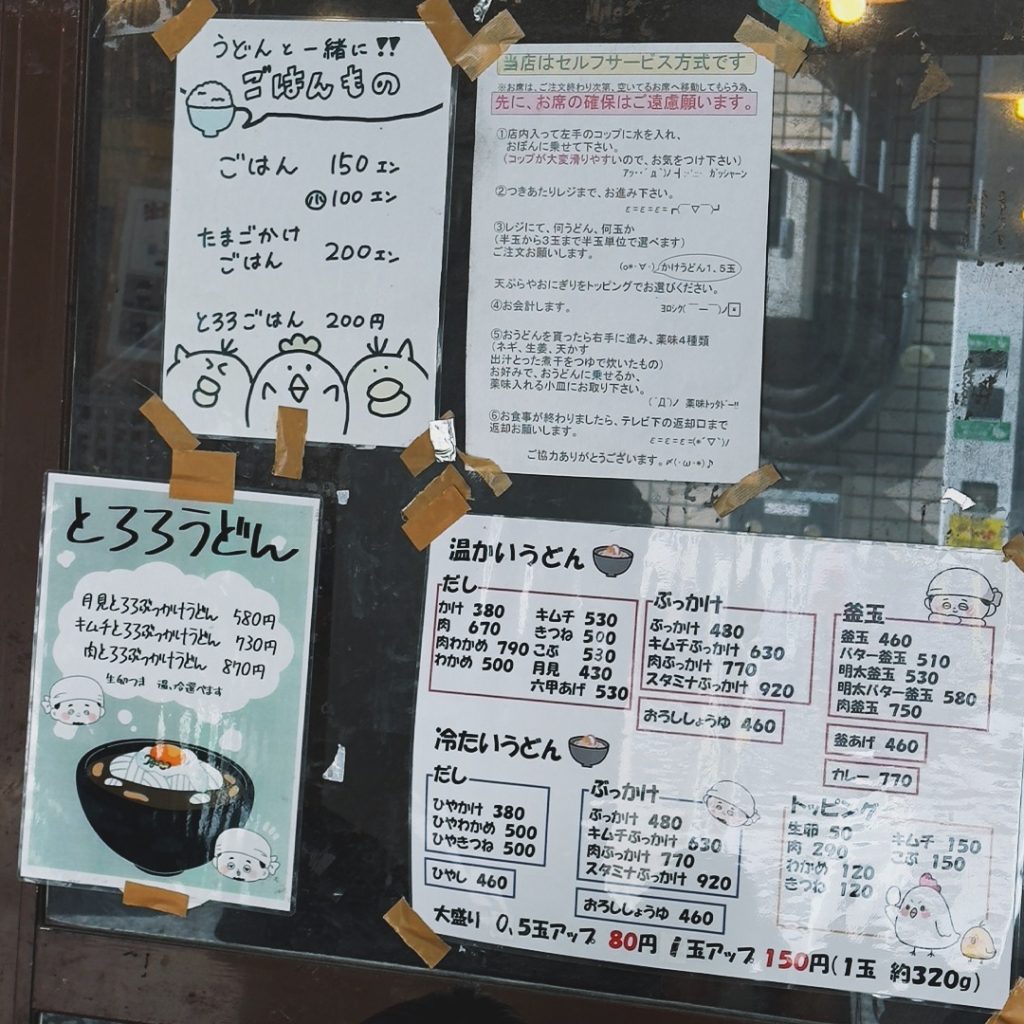 うどんと一緒に!!
ごはんもの
ごはん 150エン
小100エン
たまごかけ
ごはん 200エン
とろろごはん 200円
当店はセルフサービス方式です
※お席は、ご注文終わり次第、空いてるお席へ移動してもらう為、
先に、お席の確保はご遠慮願います。
①店内入って左手のコップに水を入れ、
おぼんに乗せて下さい。
(コップが大変滑りやすいので、お気をつけ下さい)
ガッシャーン
②つきあたりレジまで、お進み下さい。
③レジにて、何うどん、何玉か
(半玉から3玉まで半玉単位で選べます)
ご注文お願いします。
かけうどん1.5玉
天ぷらやおにぎりをトッピングでお選びください。
④お会計します。
ヨロシク(￣ー￣)ノ
⑤おうどんを貰ったら右手に進み、薬味4種類
(ネギ、生姜、天かす
出汁とった煮干をつゆで炊いたもの)
お好みで、おうどんに乗せるか、
薬味入れる小皿にお取り下さい。
(´Д`)ノ 薬味トッタドー!!
⑥お食事が終わりましたら、テレビ下の返却口まで
返却お願いします。
ご協力ありがとうございます。〆(・ω・*)♪
とろろうどん
月見とろろぶっかけうどん 580円
キムチとろろぶっかけうどん 730円
肉とろろぶっかけうどん 870円
生卵つき 温、冷選べます
温かいうどん
だし
かけ 380
肉 670
肉わかめ 790
わかめ 500
キムチ 530
きつね 500
こぶ 530
月見 430
六甲あげ 530
ぶっかけ
ぶっかけ 480
キムチぶっかけ 630
肉ぶっかけ 770
スタミナぶっかけ 920
おろししょうゆ 460
釜玉
釜玉 460
バター釜玉 510
明太釜玉 530
明太バター釜玉 580
肉釜玉 750
釜あげ 460
カレー 770
冷たいうどん
だし
ひやかけ 380
ひやわかめ 500
ひやきつね 500
ひやし 460
ぶっかけ
ぶっかけ 480
キムチぶっかけ 630
肉ぶっかけ 770
スタミナぶっかけ 920
おろししょうゆ 460
トッピング
生卵 50
肉 290
わかめ 120
きつね 120
キムチ 150
こぶ 150
大盛り 0.5玉アップ 80円 1玉アップ 150円(1玉 約320g)